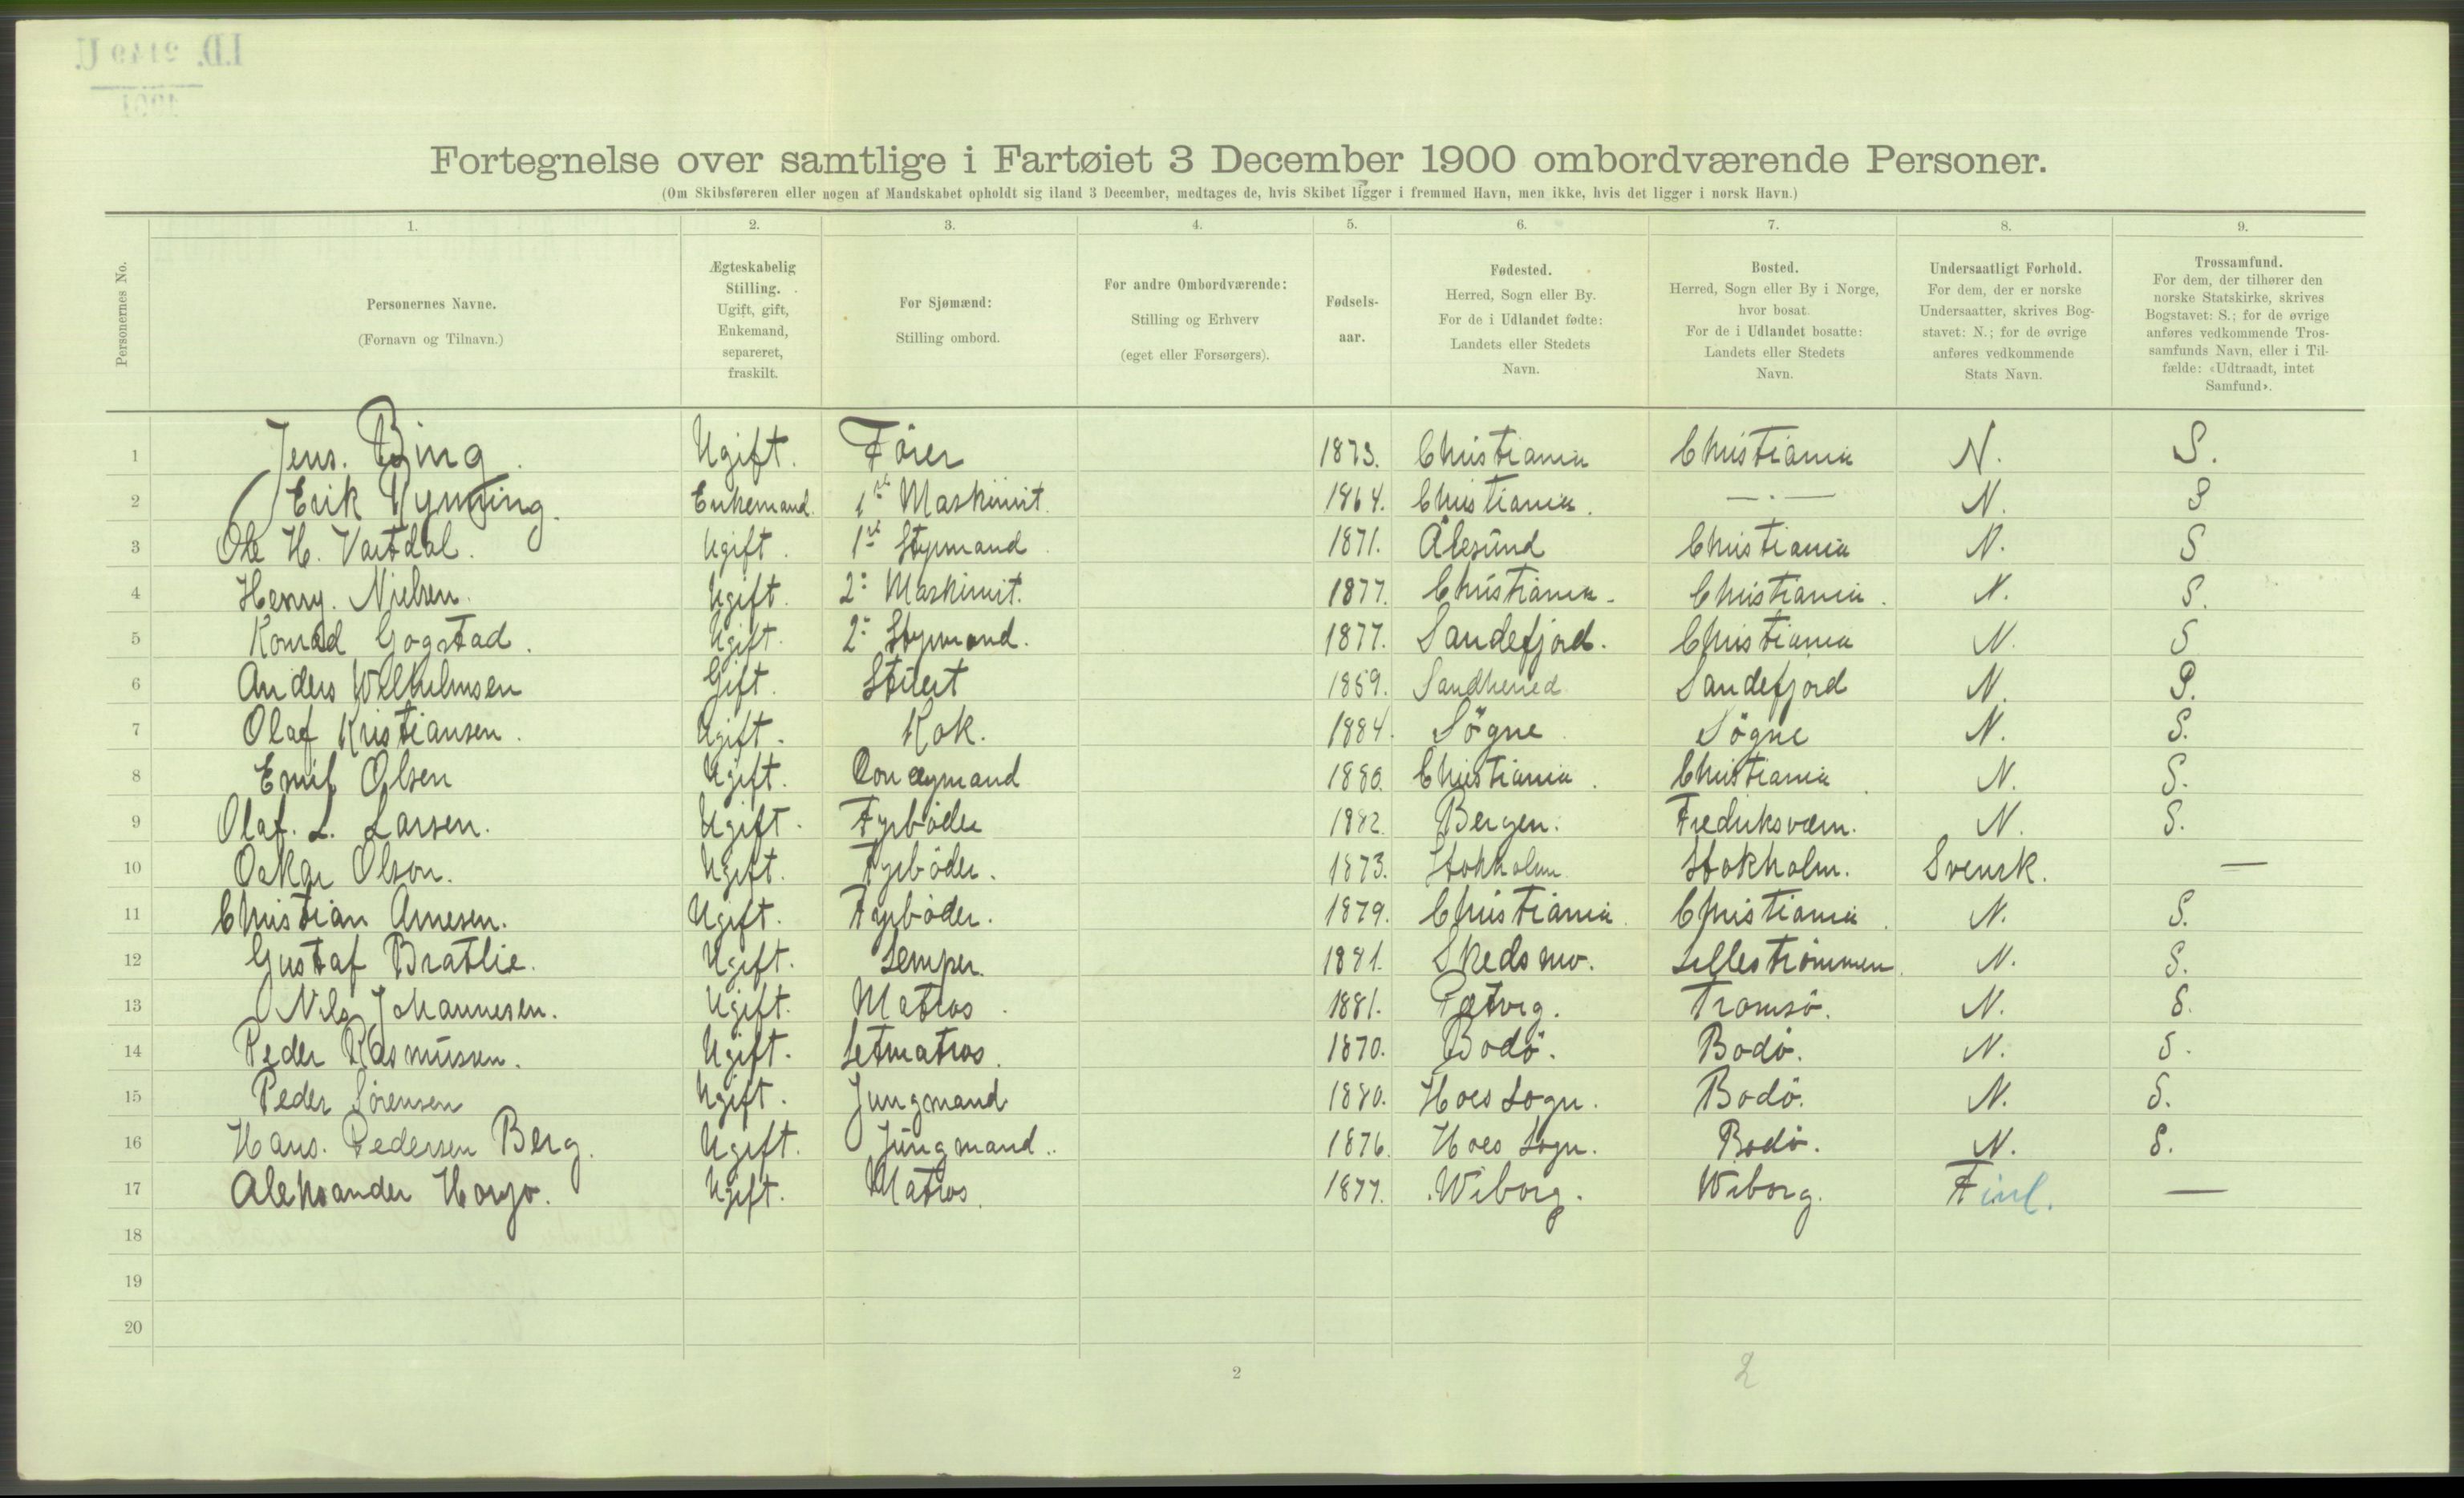 Fortegnelse over samtlige i Fartøiet 3 December 1900 ombordværende Personer.
(Om Skibsføreren eller nogen af Mandskabet opholdt sig iland 3 December, medtages de, hvis Skibet ligger i fremmed Havn, men ikke, hvis det ligger i norsk Havn.)
Personernes No.
1. 2. 3. 4. 5. 6. 7. 8. 9.
Personernes Navne.
(Fornavn og Tilnavn.)
Ægteskabelig
Stilling.
Ugift, gift,
Enkemand,
separeret,
fraskilt.
For Sjømænd:
Stilling ombord.
For andre Ombordværende:
Stilling og Erhverv
(eget eller Forsørgers).
Fødsels-
aar.
Fødested.
Herred, Sogn eller By.
For de i Udlandet fødte:
Landets eller Stedets
Navn.
Bosted.
Herred, Sogn eller By i Norge,
hvor bosat.
For de i Udlandet bosatte:
Landets eller Stedets
Navn.
Undersaatligt Forhold.
For dem, der er norske
Undersaatter, skrives Bog-
stavet: N.; for de øvrige
anføres vedkommende
Stats Navn.
Trossamfund.
For dem, der tilhører den
norske Statskirke, skrives
Bogstavet: S.; for de øvrige
anføres vedkommende Tros-
samfunds Navn, eller i Til-
fælde: «Udtraadt, intet
Samfund».
1 Jens. Bing. Ugift. Förer 1873. Christiania Christiania N. S.
2 Erik Rynning. Enkemand. 1ste Maskinist. 1864. Christiania. — . — N. S
3 Ole H. Vartdal. Ugift. 1ste Styrmand 1871. Ålesund Christiania N. S
4 Henry. Nielsen. Ugift. 2: Maskinist. 1877. Christiania. Christiania. N. S.
5 Konrad Gogstad. Ugift. 2: Styrmand. 1877. Sandefjord. Christiania N. S
6 Anders Wilhelmsen Gift. Stuert 1859. Sandherred Sandefjord N. S.
7 Olaf Kristiansen. Ugift. Kok. 1884. Sögne Sögne N. S.
8 Emil Olsen Ugift. Donkeymand 1880. Christiania. Christiania. N. S.
9 Olaf. L. Larsen. Ugift. Fyrböder 1882. Bergen. Fredriksværn. N. S.
10 Oskar Olson. Ugift. Fyrböder. 1873. Stokholm Stokholm. Svensk. —
11 Christian Arnesen. Ugift. Fyrböder. 1879. Christiania. Christiania. N. S.
12 Gustaf Bratlie. Ugift. Lemper. 1881. Skedsmo. Lillestrømmen. N. S.
13 Nils Johannesen. Ugift. Matros. 1881. Tromsö. N. S.
14 Peder Rasmussen. Ugift. Letmatros. 1870. Bodö. Bodö. N. S.
15 Peder Sörensen Ugift. Jungmand 1880. Hoes Sogn. Bodö. N. S.
16 Hans. Pedersen Berg. Ugift. Jungmand.. 1876. Hoes Sogn. Bodö. N. S.
17 Aleksander Ugift. Matros. 1877. Wiborg. Wiborg. Finl. —
18
19
20
2 2